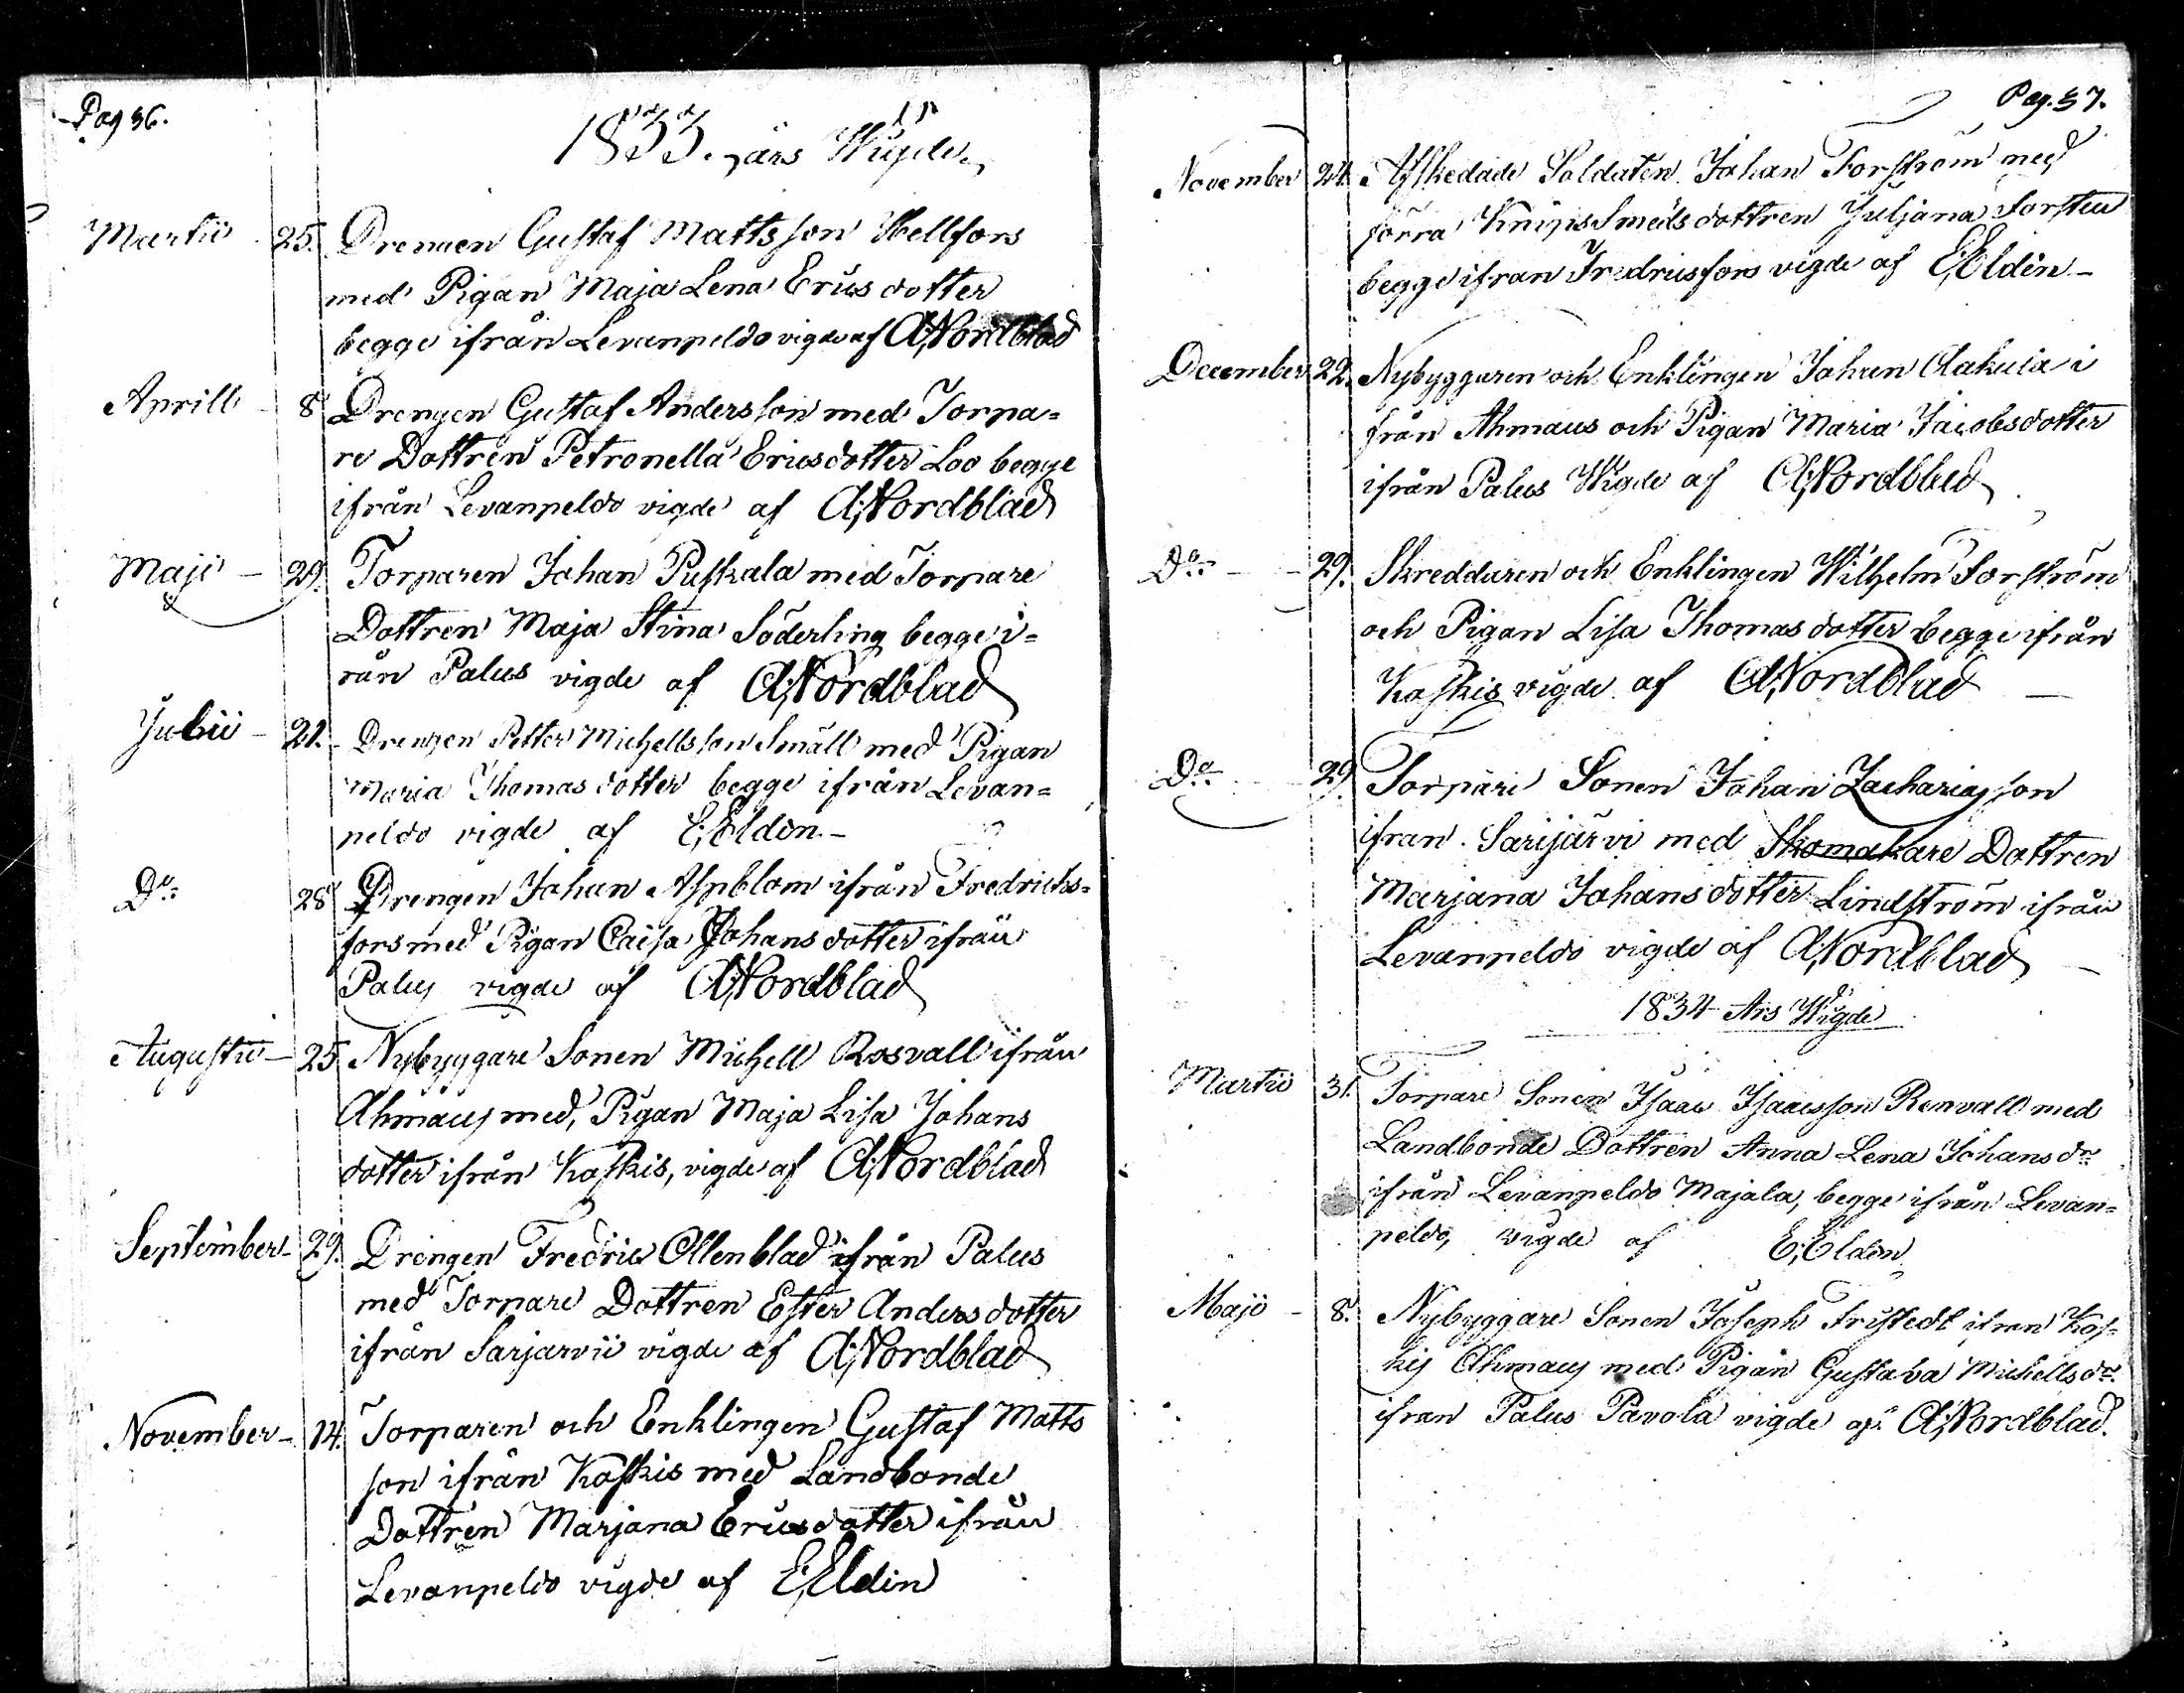 Pag 36.
1833. års Wigde
Martii 25. Drengen Gustaf Mattsson Hellfors
med Pigan Maja Lena Ericsdotter
begge ifrån Levanpeldo vigde af A;Nordblad
Aprill - 8 Drengen Gustaf Andersson med Torpa=
re Dottren Petronella Ericsdotter Loo begge
ifrån Levanpeldo vigde af A;Nordblad
Maji - 29. Torparen Johan Puskala med Torpare
Dottren Maja Stina Söderling begge i=
rån Palus vigde af A;Nordblad
Julii - 21. Drengen Petter Michellsson Småll med Pigan
Maria Thomasdotter begge ifrån Levan=
peldo vigde af E;Eldèn -
Do 28 Drengen Johan Aspblom ifrån Fredrichs=
fors med Pigan Caisa Johansdotter ifrån
Palus vigde af A;Nordblad
Augusti - 25 Nybyggare Sonen Michell Rosvall ifrån
Ahmaus med, Pigan Maja Lisa Johans
dotter ifrån Kaskis, vigde af A;Nordblad
September - 29. Drengen Fredric Ollenblad ifrån Palus
med Torpare Dottren Ester Andersdotter
ifrån Sarjarvii vigde af A;Nordblad
November - 14. Torparen och Enklingen Gustaf Matts
son ifrån Kaskis med Landbonde
Dottren Marjana Ericsdotter ifrån
Levanpeldo vigde af E;Eldèn
Pag. 37.
November 24. Afskedade Soldaten Johan Forström med
förra Knipssmedsdottren Juljana Forsten
begge ifrån Fredricsfors vigde af E;Eldèn -
December 22. Nybyggaren och Enklingen Johan Alakula i
från Ahmaus och Pigan Maria Jacobsdotter
ifrån Palus Wigde af A;Nordblad
Do - - 29. Skreddaren och Enklingen Wilhelm Forström
och Pigan Lisa Thomasdotter begge ifrån
Kaskis vigde af A;Nordblad -
Do 29. Torpare Sonen Johan Zachariasson
ifran Sarijärvi med Skomakare Dottren
Marjana Johansdotter Lindström ifrån
Levanpeldo vigde af A;Nordblad -
1834 Års Wigde
Martii 31. Torpare Sonen Isaac Isaacsson Renvall med
Landbonde Dottren Anna Lena Johansdr
ifrån Levanpeldo Majala, begge ifrån Levan=
peldo, vigde af E;Eldèn
Maji - 8. Nybyggare Sonen Joseph Fristedt ifran Kas=
kis Ahmaus med Pigan Gustava Michellsdr
ifran Palus Pavola vigde af A;Nordblad.